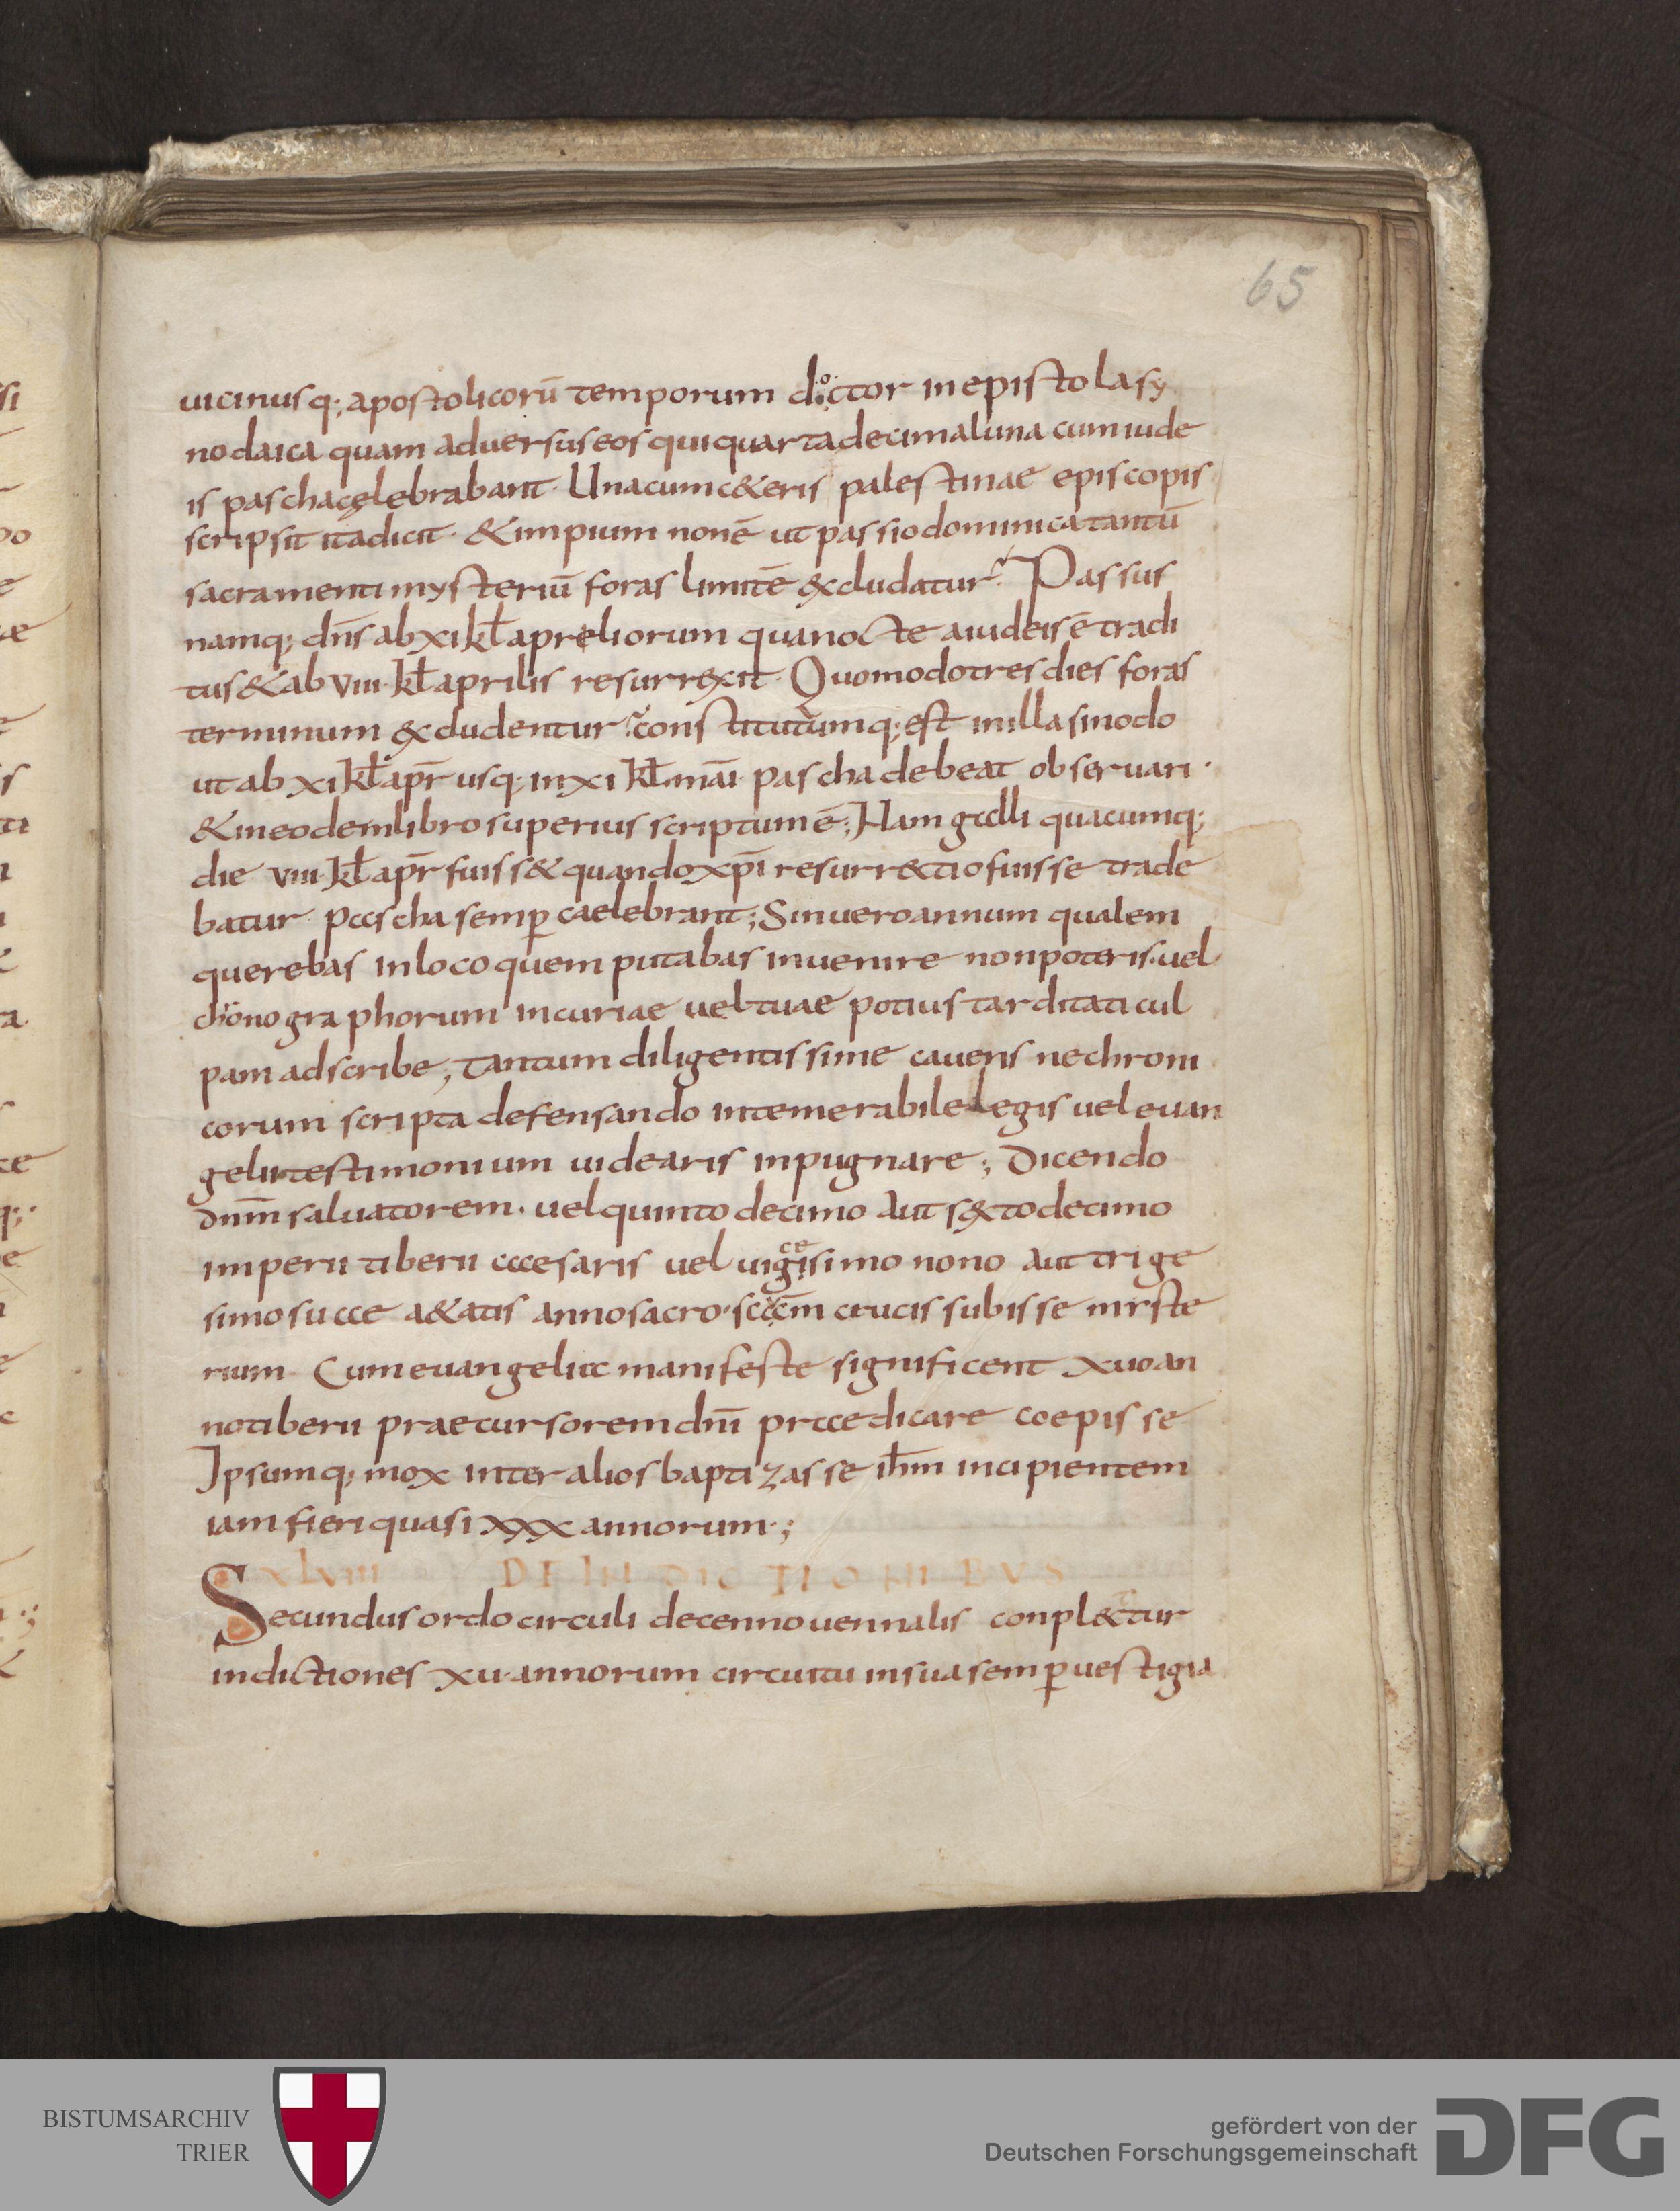 65
uicinusq; apostolicorū temporum doctor in epistola sy
nodaica quam aduersus eos qui quarta decima luna cum iude
is pascha celebrabant. Una cum c&eris palestinae episcopis
scripsit ita dicit. & impium non ē ut passio dominica tantū
sacramenti mysteriū foras limitē excludatur. Passus
namq; dn̄s ab xi kl̄ apreliorum qua nocte a iudeis ē tradi
tus & ab viii. kl̄ aprilis resurrexit. Quomodo tres dies foras
terminum excludentur. constitutumq; est in illa sinodo
ut ab xi kl̄ apr̄ usq; in xi kl̄ mai. pascha debeat obseruari.
& in eodem libro superius scriptum ē; Nam galli quacumq;
die viii. kl̄ apr̄ fuiss& quando xp̄i resurr&ctio fuisse trade
batur pascha semp caelebrant; Sin uero annum qualem
querebas in loco quem putabas inuenire non poteris. uel
chronographorum incuriae uel tuae potius tarditati cul
pam adscribe; tantum diligentissime caueris ne chroni
corum scripta defensando intemerabile legis uel euan
gelii testimonium uidearis inpugnare; Dicendo
dnm̄ saluatorem. uel quinto decimo aut sexto decimo
imperii tiberii caesaris uel uigesimo nono aut trige
simo suae a&atis anno sacro scm̄ crucis subisse myste
rium. Cum euangelia manifeste significent xuo an
no tiberii praecursorem dnī praedicare coepisse
Ipsumq; mox inter alios baptizasse ihm̄ incipientem
iam fieri quasi xxx annorum.;
xlviii DE INDICTIONIBUS
Secundus ordo circuli decennouennalis conpl&ctur
indictiones xu. annorum circuitu in sua semp uestigia
BISTUMSARCHIV
TRIER
gefördert von der
Deutschen Forschungsgemeinschaft
DFG